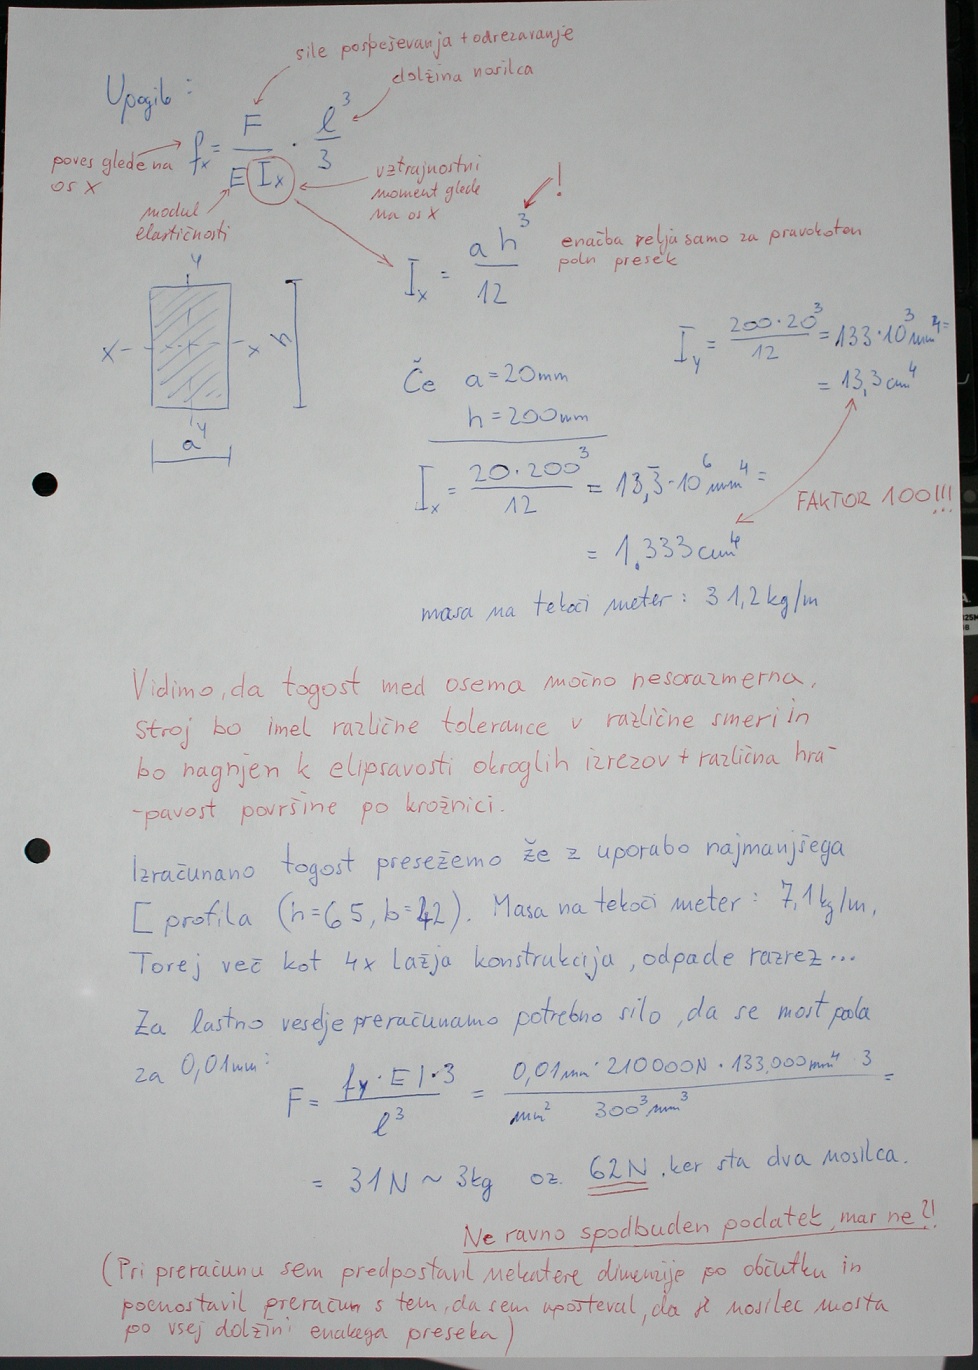 sile pospeševanja + odrezavanje
dolžina nosilca
Upogib:
fx = F / E Ix · l³ / 3
poves glede na
os X
modul
elastičnosti
vztrajnostni
moment glede
na os X
!
Ix = a h³ / 12
enačba velja samo za pravokoten
poln presek
Y
X X
h
Y
a
Iy = 200·20³ / 12 = 133·10³ mm⁴ =
= 13,3 cm⁴
Če a = 20mm
h = 200mm
Ix = 20·200³ / 12 = 13,3·10⁶ mm⁴ =
= 1.333 cm⁴
FAKTOR 100!!!
masa na tekoči meter: 31,2 kg/m
Vidimo, da togost med osema močno nesorazmerna.
Stroj bo imel različne tolerance v različne smeri in
bo nagnjen k elipsavosti okroglih izrezov + različna hra-
-pavost površine po krožnici.
Izračunano togost presežemo že z uporabo najmanjšega
[ profila (h=65, b=42). Masa na tekoči meter: 7,1 kg/m,
Torej več kot 4x lažja konstrukcija, odpade razrez...
Za lastno veselje preračunamo potrebno silo, da se most poda
za 0,01mm:
F = fy · E I · 3 / l³ = 0,01mm · 210000N · 133.000mm⁴ 3 / mm² 300³ mm³ =
= 31N ~ 3kg oz. 62N, ker sta dva nosilca.
Ne ravno spodbuden podatek, mar ne?!
(Pri preračunu sem predpostavil nekatere dimenzije po občutku in
poenostavil preračun s tem, da sem upošteval, da je nosilec mosta
po vsej dolžini enakega preseka)